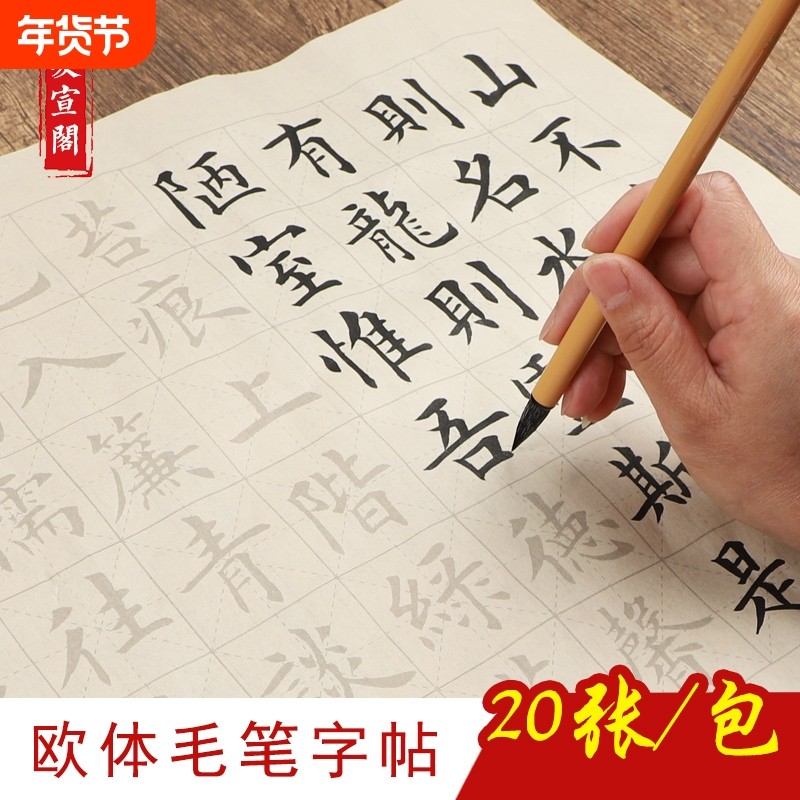 年货节
宣閣
山不
則名水
有龍則斯是
陋室惟吾德馨
苔痕上階綠
入簾青談
儒往
欧体毛笔字帖
20张/包